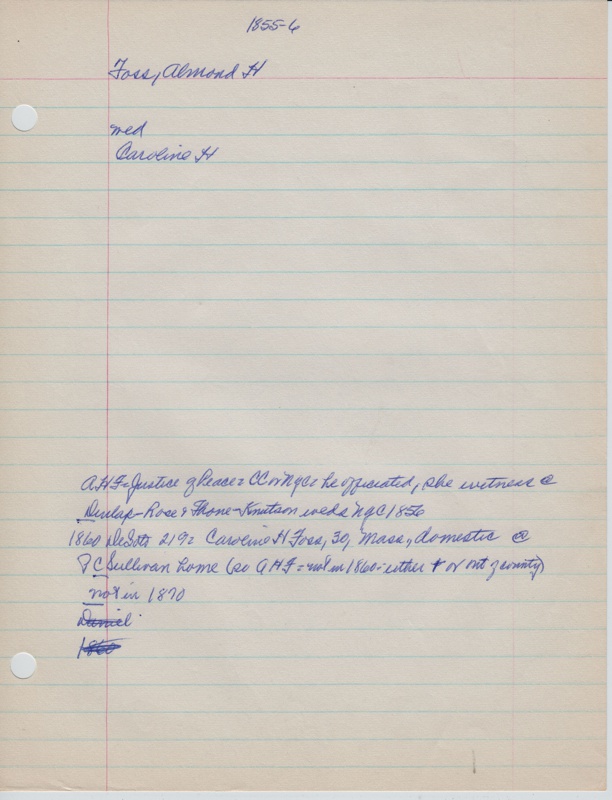 1855-6
Foss, Almond H
wed
Caroline H
AHF = Justice of Peace = CC or NyC = he officiated, she witness @
Dunlap-Rose & Thone-Knutson weds NyC 1856
1860 DeSoto 219 = Caroline H Foss, 30, Mass, domestic @
P C Sullivan home (so AHF = not in 1860 - either + or out of county)
not in 1870
Daniel
1860